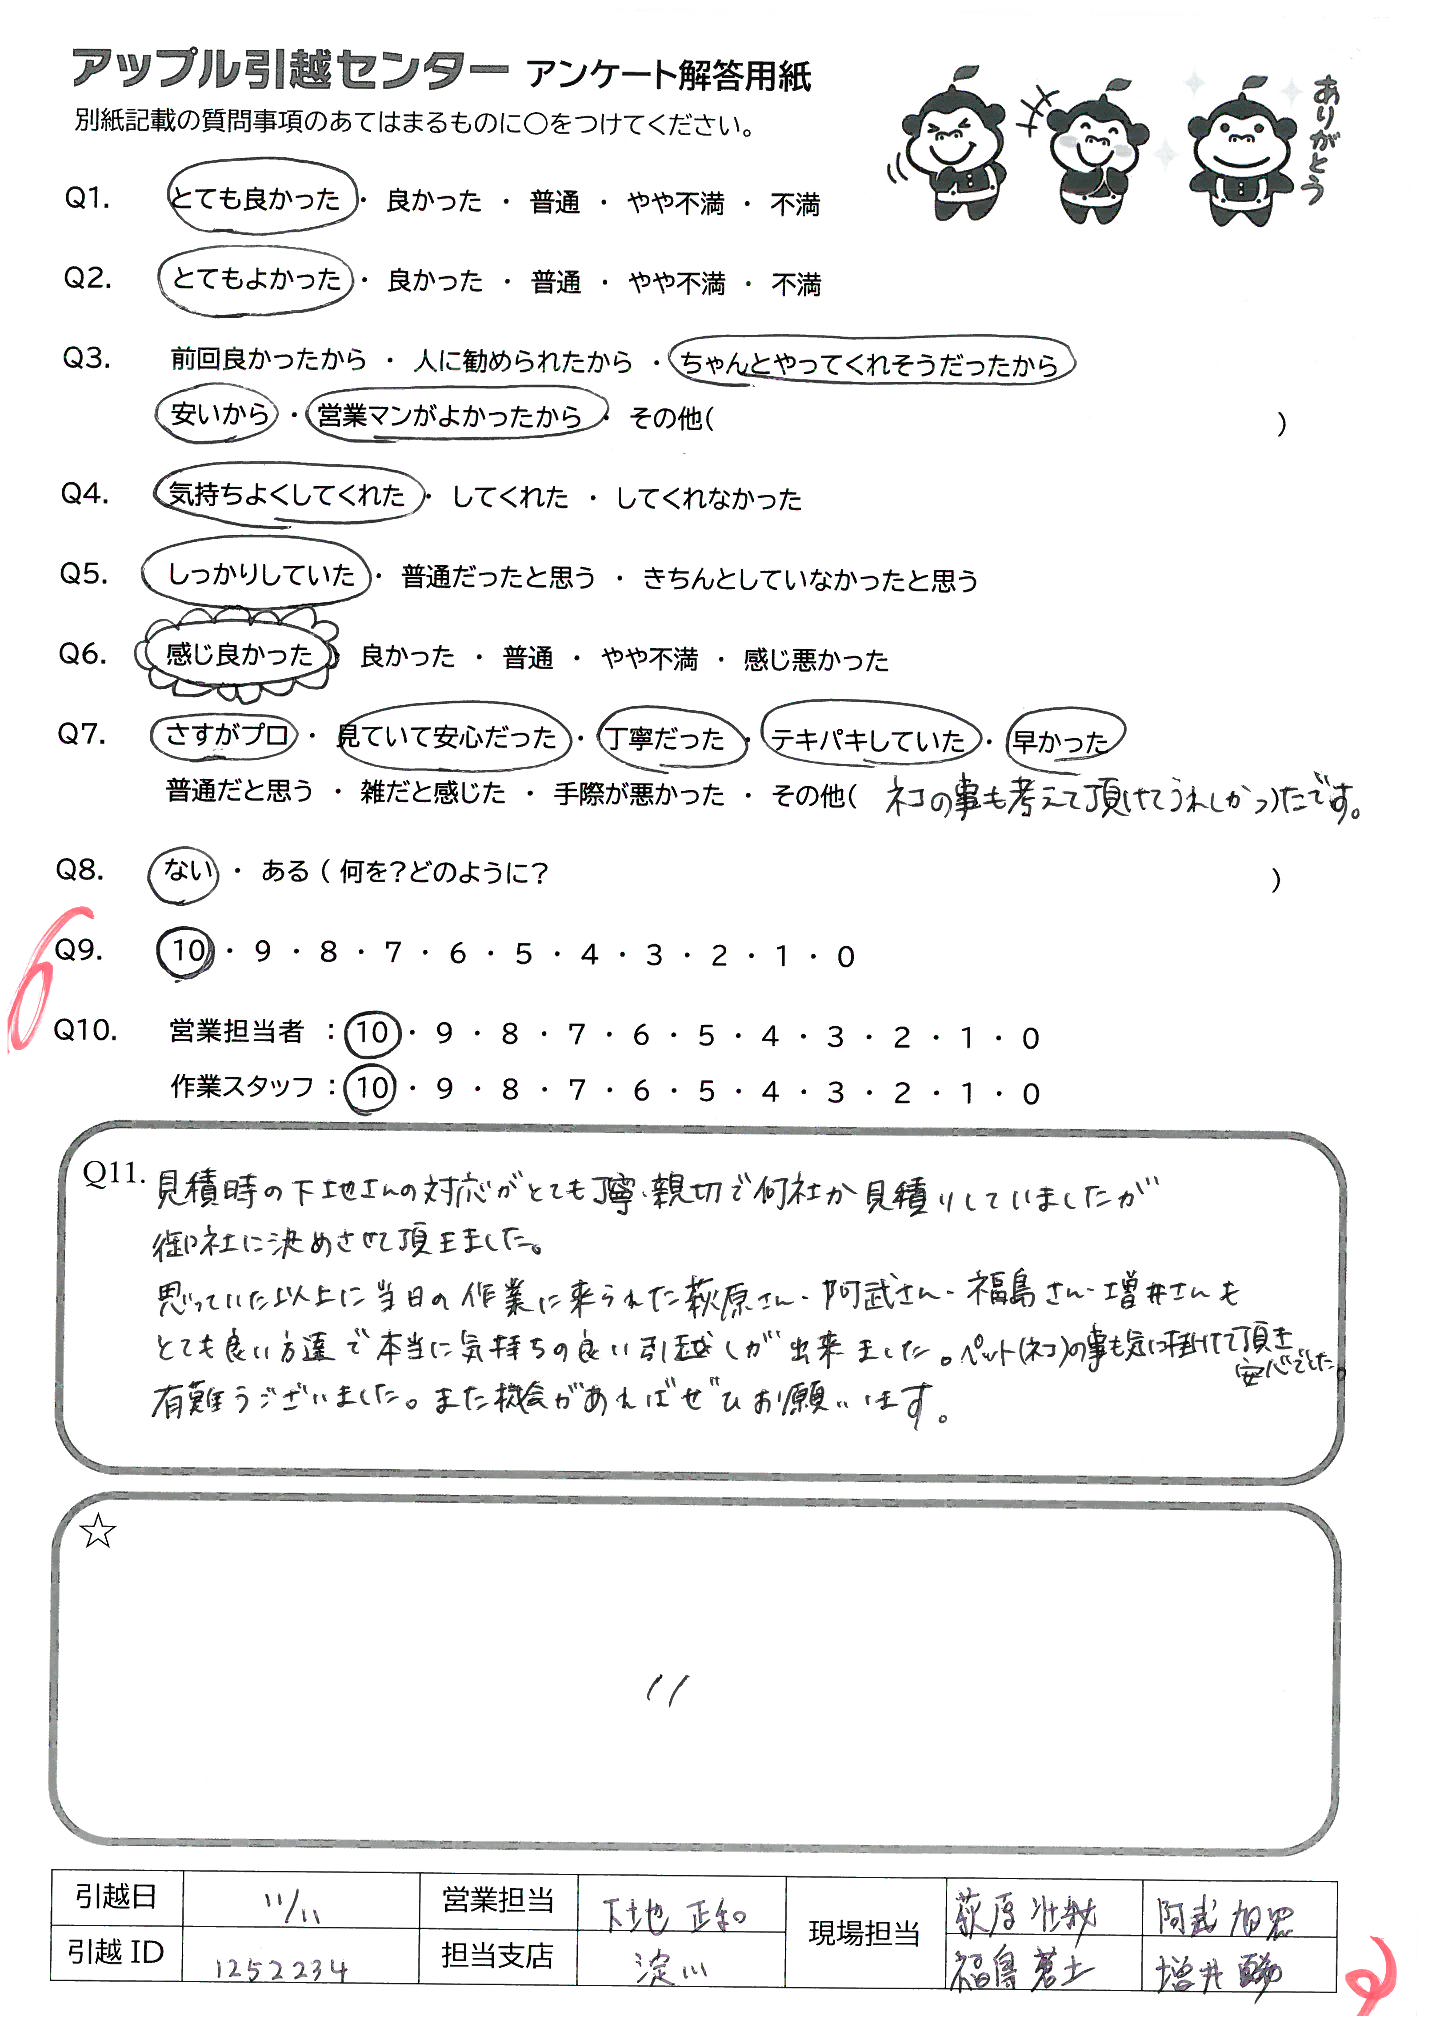 アップル引越センター アンケート解答用紙
別紙記載の質問事項のあてはまるものに○をつけてください。
ありがとう
Q1. とても良かった ・ 良かった ・ 普通 ・ やや不満 ・ 不満
Q2. とてもよかった ・ 良かった ・ 普通 ・ やや不満 ・ 不満
Q3. 前回良かったから ・ 人に勧められたから ・ ちゃんとやってくれそうだったから
安いから ・ 営業マンがよかったから ・ その他( )
Q4. 気持ちよくしてくれた ・ してくれた ・ してくれなかった
Q5. しっかりしていた ・ 普通だったと思う ・ きちんとしていなかったと思う
Q6. 感じ良かった ・ 良かった ・ 普通 ・ やや不満 ・ 感じ悪かった
Q7. さすがプロ ・ 見ていて安心だった ・ 丁寧だった ・ テキパキしていた ・ 早かった
普通だと思う ・ 雑だと感じた ・ 手際が悪かった ・ その他( ネコの事も考えて頂けてうれしかったです。
Q8. ない ・ ある ( 何を？どのように？ )
6
Q9. 10 ・ 9 ・ 8 ・ 7 ・ 6 ・ 5 ・ 4 ・ 3 ・ 2 ・ 1 ・ 0
Q10. 営業担当者 : 10 ・ 9 ・ 8 ・ 7 ・ 6 ・ 5 ・ 4 ・ 3 ・ 2 ・ 1 ・ 0
作業スタッフ : 10 ・ 9 ・ 8 ・ 7 ・ 6 ・ 5 ・ 4 ・ 3 ・ 2 ・ 1 ・ 0
Q11. 見積時の下地さんの対応がとても丁寧、親切で何社か見積りしていましたが
御社に決めさせて頂きました。
思っていた以上に当日の作業に来られた萩原さん・阿武さん・福島さん・増井さんも
とても良い方達で本当に気持ちの良い引越しが出来ました。ペット(ネコ)の事も気に掛けて頂き
安心でした。
有難うございました。また機会があればぜひお願いします。
☆
引越日 11/11 営業担当 下地 正和 現場担当 萩原 阿武
引越ID 1252234 担当支店 淀川 福島 蒼士 増井